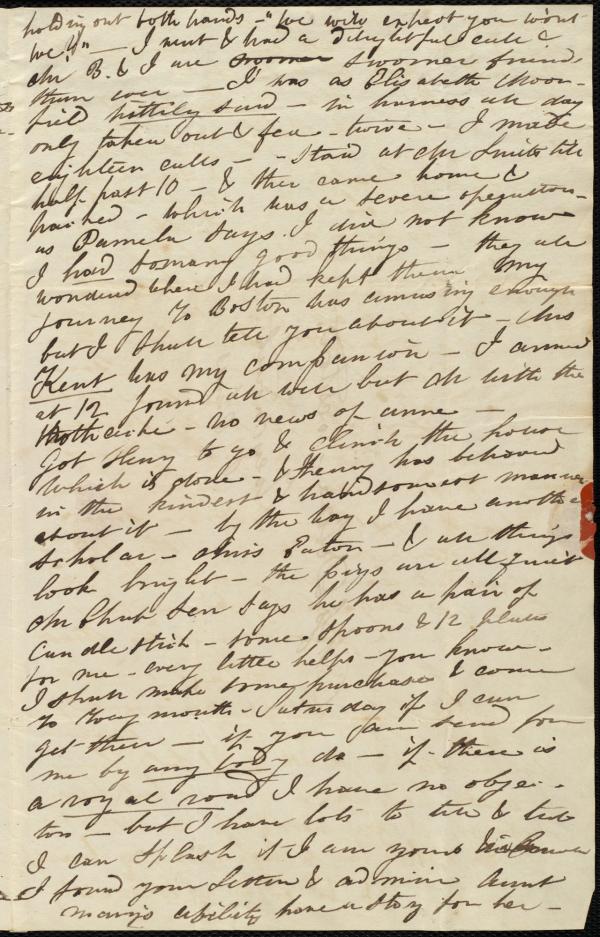 holding out both hands - "We will expect you won't
we?" - I went & had a delightful call &
Mr B. & I are swooner friends
than ever - I was as Elizabeth Moon-
field said - in harness all day
only taken out & fed - twice - I made
eighteen calls - - staid at Mr Smiths till
half past 10 - & then came home &
packed - which was a severe operation -
as Pamela says. I did not know
I had so many good things - they all
wondered where I had kept them My
journey to Boston was amusing enough
but I shall tell you about it - Miss
Kent was my companion - I arrived
at 12 found all well but Mr with the
toothache - no news of Anne -
Got Henry to go & the house
which is done - & Henry has behaved
in the kindest & handsomest manner
about it - by the way I have another
scholar - Miss Eaton - & all things
look bright - the pigs are all quiet
Mr says he has a pair of
candlesticks - some spoons & 12
for me - every little helps - you know -
I shall make some purchases & come
to Weymouth - Saturday if I can
get there - if you can send for
me by any body do - if there is
a royal road I have no objec-
tion - but I have lots to tell &
I can splash if I am yours
I found your letter & admire Aunt
Mary's ability have a story for her -